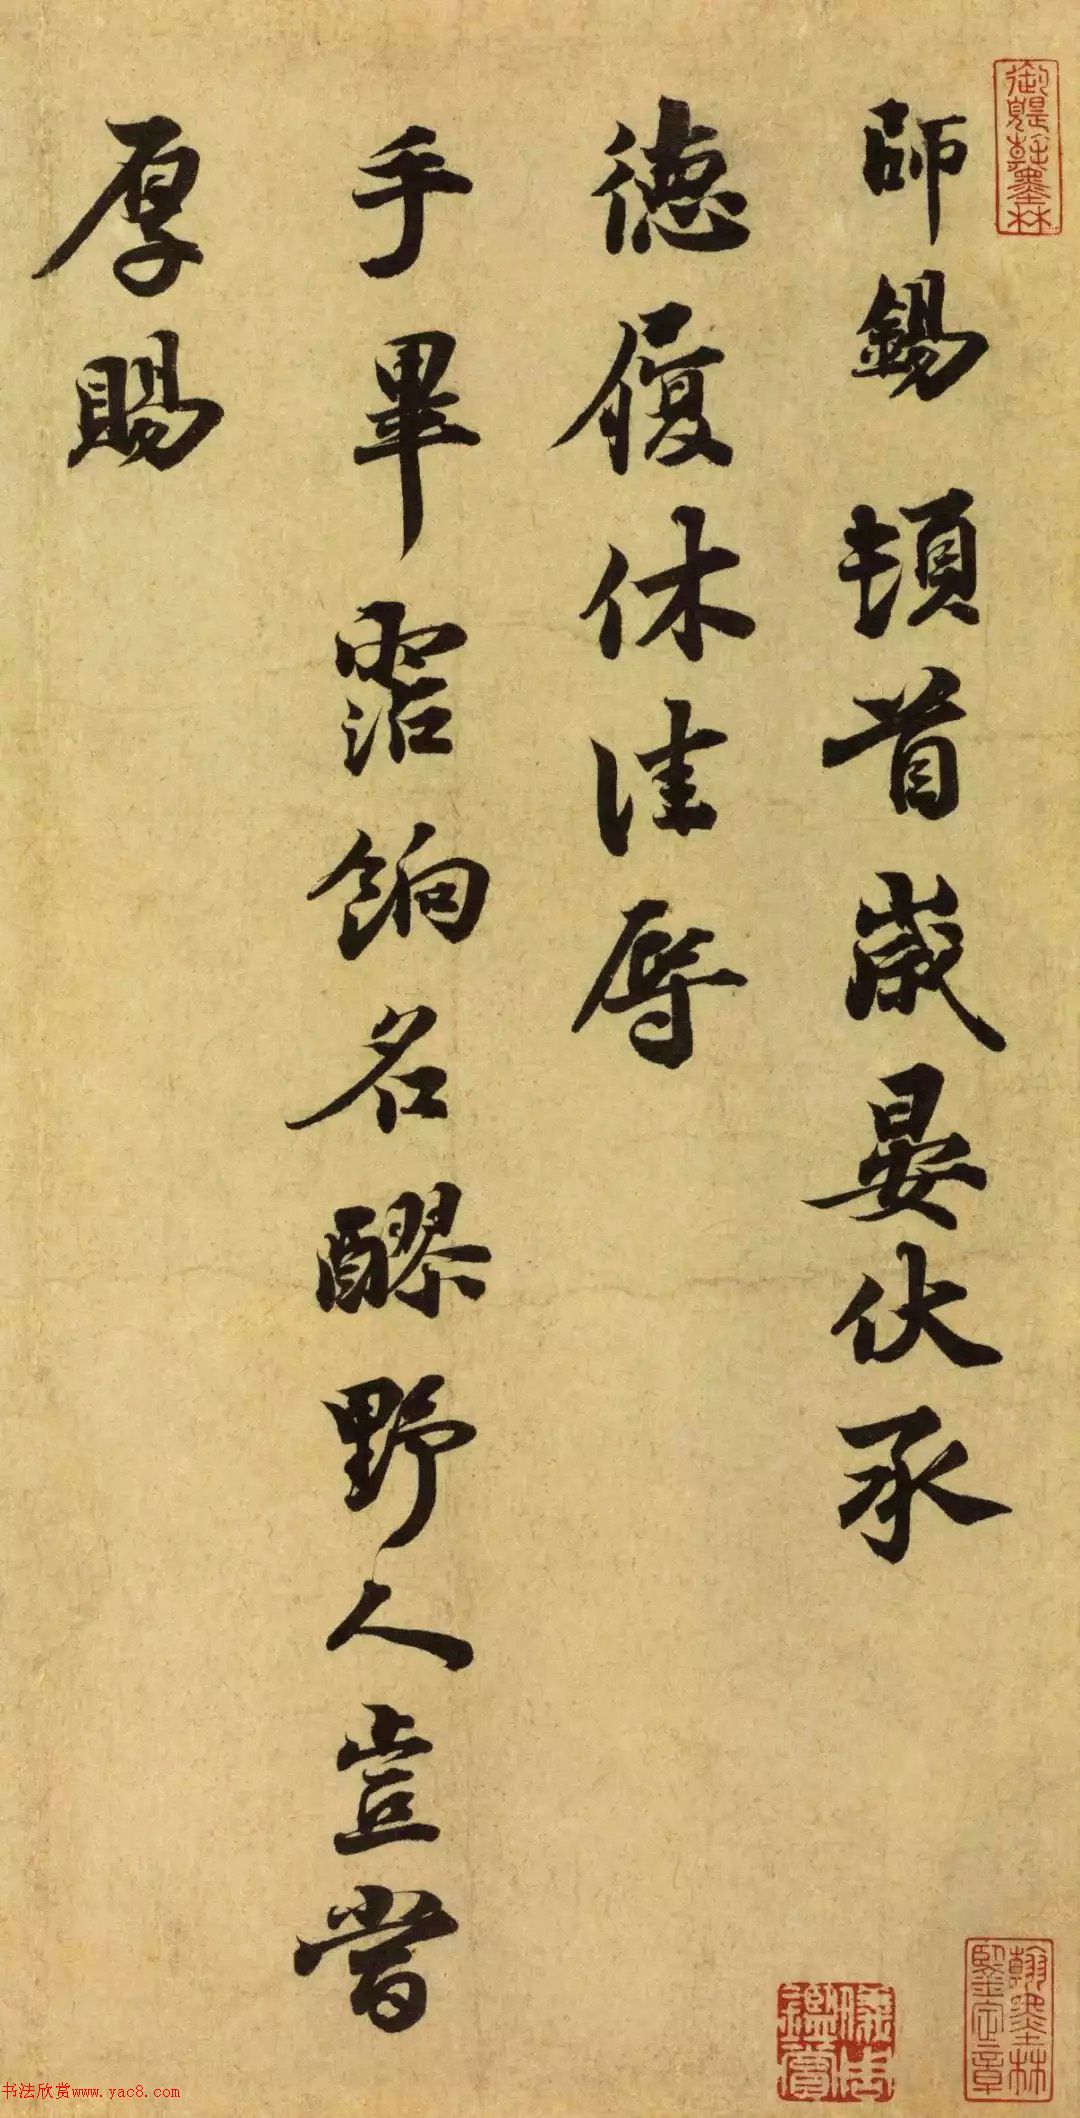 師錫頓首歲晏伏承
德履休佳辱
手畢霑餉名醪野人豈嘗
厚賜
翰墨林鑒定章
書法欣賞www.yac8.com